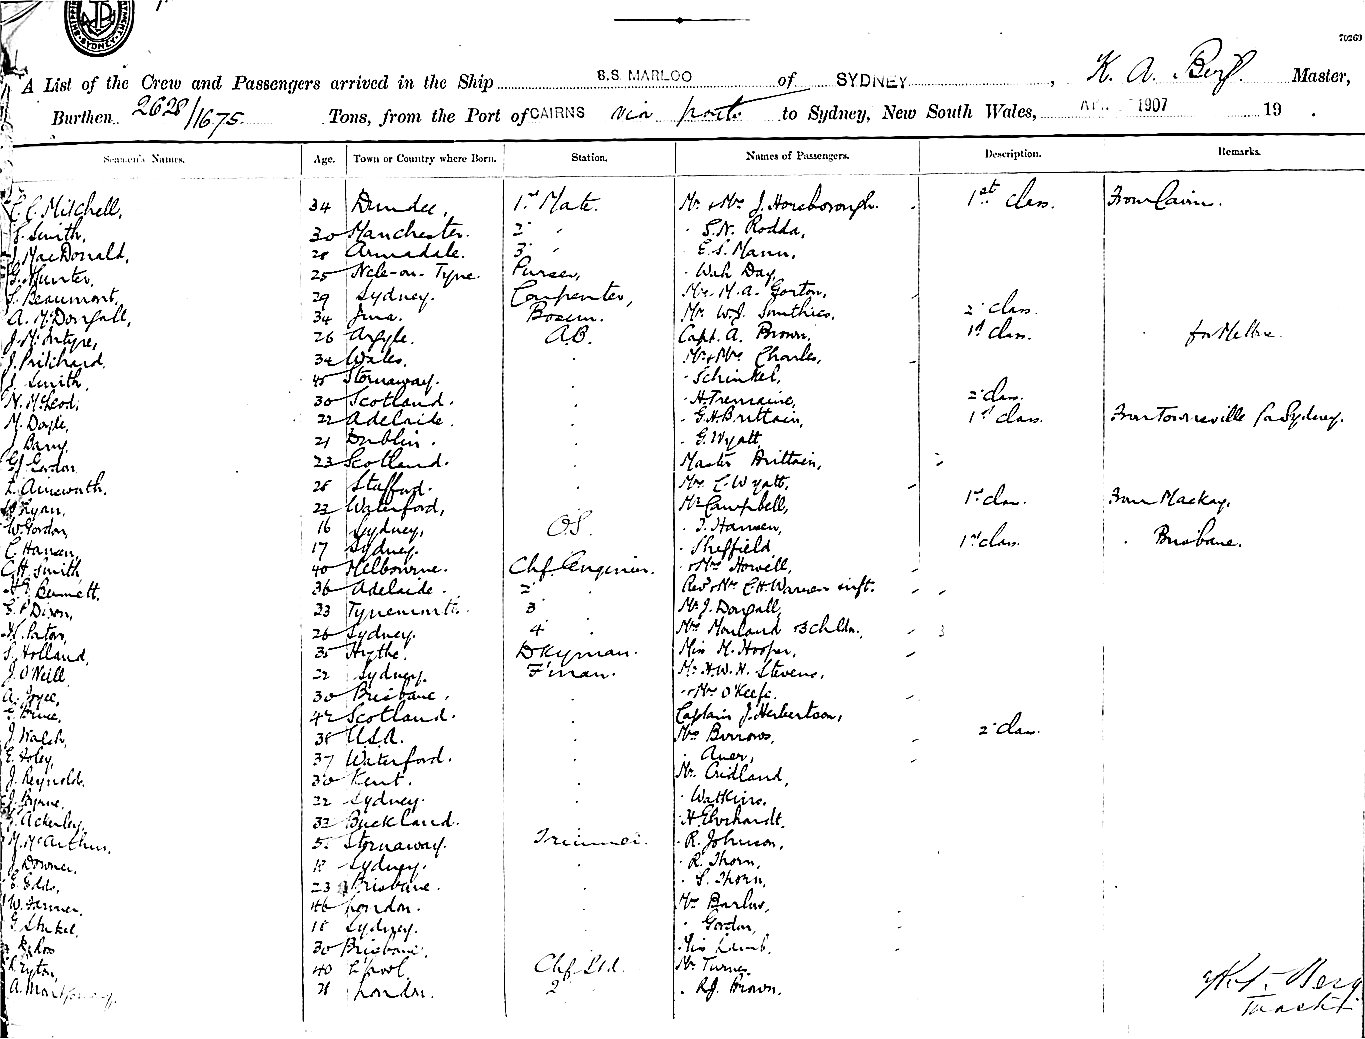 SYDNEY
70263
A List of the Crew and Passengers arrived in the Ship S.S. MARLOO of SYDNEY, K. A. Berg. Master,
Burthen 2628/1675. Tons, from the Port of CAIRNS via ports to Sydney, New South Wales, 1907 19 .
Seamen's Names. Age. Town or Country where Born. Station. Names of Passengers. Description. Remarks.
Mitchell, 34 Dundee, 1st Mate. Mr & Mrs J. Horsborough. 1st Class. From Cairns.
Smith, 30 Manchester. 2 " S. N. Rodda,
J. MacDonald, 28 Armadale. 3 " E. S. Mann,
G. Hunter, 25 Ncle-on-Tyne. Purser, " Day,
Beaumont, 29 Sydney. Carpenter, M. A. Gorton,
A. McDougall, 34 Bosun. Mr W. J. Smithies, 2 Class.
J. McIntyre, 26 Argyle. AB. Capt. A. Brown, 1st Class.
J. Pritchard 34 Wales. " Mr & Mrs Charles,
Smith, 45 Stornaway. " Schinkel,
N. McLeod, 30 Scotland. " H. Tremaine, 2 Class.
M. Doyle, 22 Adelaide. " G. H. Brittain, 1st Class. From Townsville for Sydney.
J. Barry, 21 Dublin. " G. Wyatt,
Gordon 23 Scotland. " Master Brittain,
Ainsworth, 28 Stafford. " Wyatt,
Ryan, 23 Waterford, " Campbell, 1st Class. From Mackay,
W. Gordon, 16 Sydney, OS. Hansen,
C. Hansen, 17 Sydney. " Sheffield 1st Class. " Brisbane.
C. H. Smith 40 Melbourne. Chf. Engineer. " Mrs Howell,
Bennett. 36 Adelaide. 2 " Revd & Mrs C. H. Warren
Dixon, 33 Tynemouth. 3 " Mr J. Dougall,
Porton, 26 Sydney. 4 " Mrs Morland & 3 Childn.,
S. Holland, 35 Hythe. Dkyman. Miss M. Hooper,
J. O'Neill 22 Sydney. F'man. Mr H. W. H. Stevens,
A. Joyce, 30 Brisbane. " & Mrs O'Keefe.
42 Scotland. " Captain J. Herbertson,
J. Walsh, 38 U.S.A. " Mrs Burrows, 2 Class.
E. Foley, 37 Waterford. " Auer,
J. Reynolds. 30 Kent. " Mr. Cridland,
J. Byrne, 22 Sydney. " Watkins.
Ackerley, 32 Buckland. " H. Ehrhardt.
McArthur, Stornaway. Trimmer. " R. Johnson,
J. Downer, 18 Sydney. " R. Thorn,
E. 23 Brisbane. " S. Thorn,
W. Farmer, 46 London. " Mrs Barlow,
G. 18 Sydney. " Gordon,
30 Brisbane. " Miss Lamb.
40 L'pool. Chf. Std. Mr Turner
A. Montgomery. 28 London. 2 " R. J. Brown.
K. A. Berg
Master